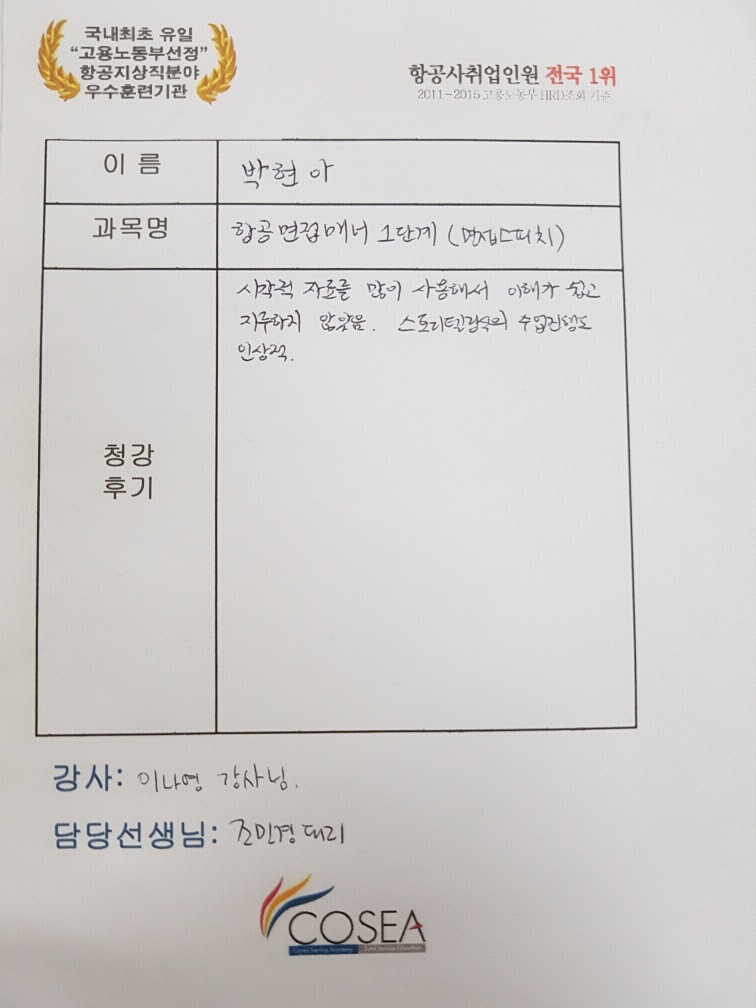 국내최초 유일
"고용노동부선정"
항공지상직분야
우수훈련기관
항공사취업인원 전국 1위
2011-2015 고용노동부 HRD조회 기준
이 름
박현아
과목명
항공면접매너 1단계 (면접스피치)
청강
후기
시각적 자료를 많이 사용해서 이해가 쉽고
지루하지 않았음. 스토리텔링식의 수업진행도
인상적.
강사: 이나영 강사님.
담당선생님: 조민경대리
COSEA
Korea Service Academy